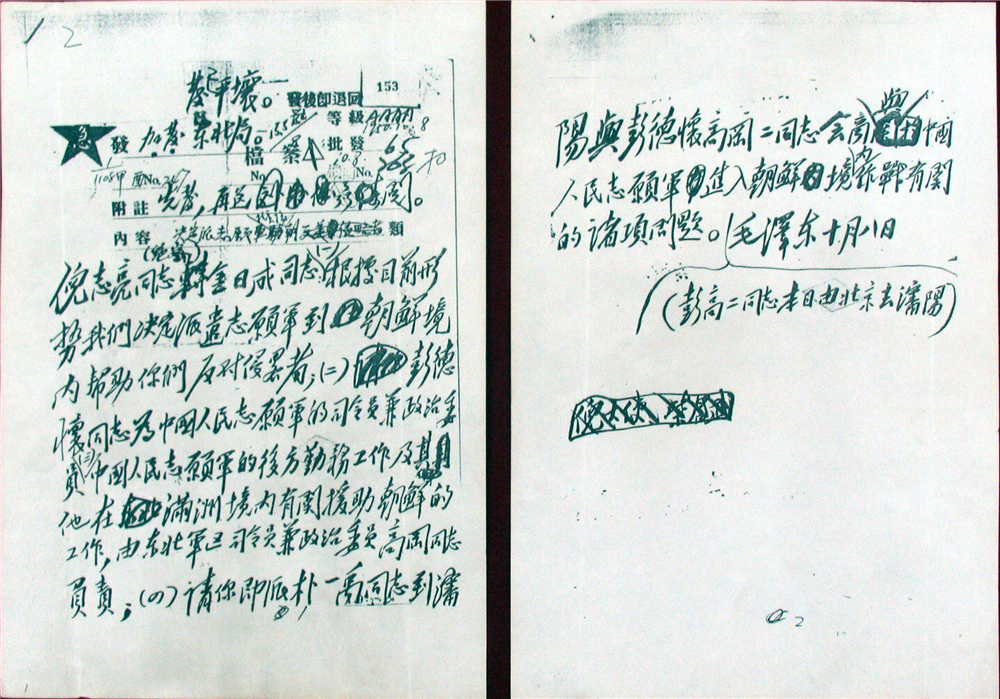 1 2
發平壤。
發後即退回
153
發 加發 东北局。 等級
檔案 批發
No. No. No.
附註 先發,再送 周。
內容 類
(絕密)
倪志亮同志轉金日成同志(一)根據目前形
勢我們决定派遣志願軍到朝鮮境
內幫助你們反对侵畧者;(二)彭德
懷同志為中國人民志願軍的司令員兼政治委
員(三)中國人民志願軍的後方勤務工作及其
他在滿洲境內有関援助朝鮮的
工作,由东北軍区司令員兼政治委員高岡同志
負責;(四)請你即派朴一禹同志到瀋
陽與彭德懷高岡二同志会商與中國
人民志願軍進入朝鮮境內作戰有関
的諸項問題。毛澤东十月八日
(彭高二同志本日由北京去瀋陽)
2